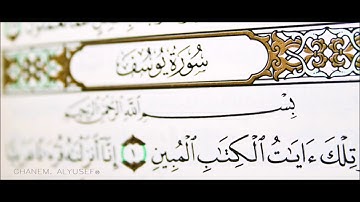 سُورَةُ يُوسُفَ
بِسْمِ اللَّهِ الرَّحْمَٰنِ الرَّحِيمِ
تِلْكَ ءَايَٰتُ ٱلْكِتَٰبِ ٱلْمُبِينِ ١ إِنَّآ أَنزَلْنَٰهُ
GHANEM. ALYUSEF